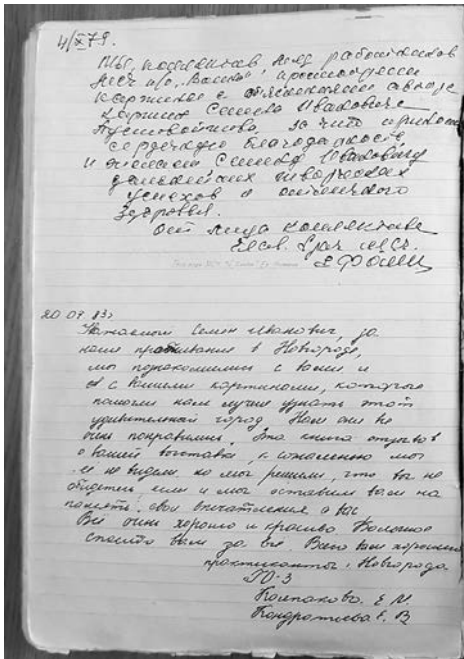 4/X 79.
Мы, коллектив мед работников
МСЧ п/о „Волна", просмотрели
картины с объяснением автора
картин Семена Ивановича
Пустовойтова, за что приносим
сердечную благодарность
и желаем Семену Ивановичу
дальнейших творческих
успехов и отличного
здоровья.
От лица коллектива
Глав. врач МСЧ.
20 07 83г
Уважаемый Семен Иванович, за
наше пребывание в Новгороде,
мы познакомились с вами и
с вашими картинами, которые
помогли нам лучше узнать этот
удивительный город. Нам они все
очень понравились. Эта книга отзывов
о вашей выставке, к сожалению мы
её не видели, но мы решили, что вы не
обидетесь, если и мы оставим вам на
память свои впечатления о вас
Всё очень хорошо и красиво. Большое
спасибо вам за всё. Всего вам хорошего
практиканты г. Новгорода
Колпакова. Е. М.
Кондратьева. В